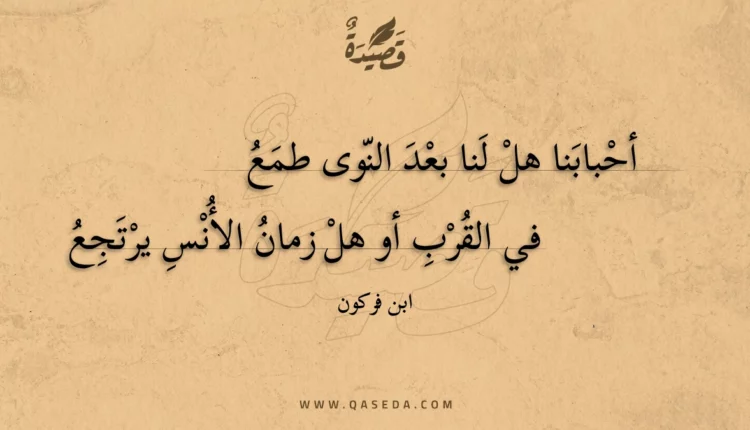 قَصِيْدَةٌ
أحْبابَنا هلْ لَنا بعْدَ النّوى طمَعُ
في القُرْبِ أو هلْ زمانُ الأُنْسِ يرْتَجِعُ
ابن فركون
WWW.QASEDA.COM